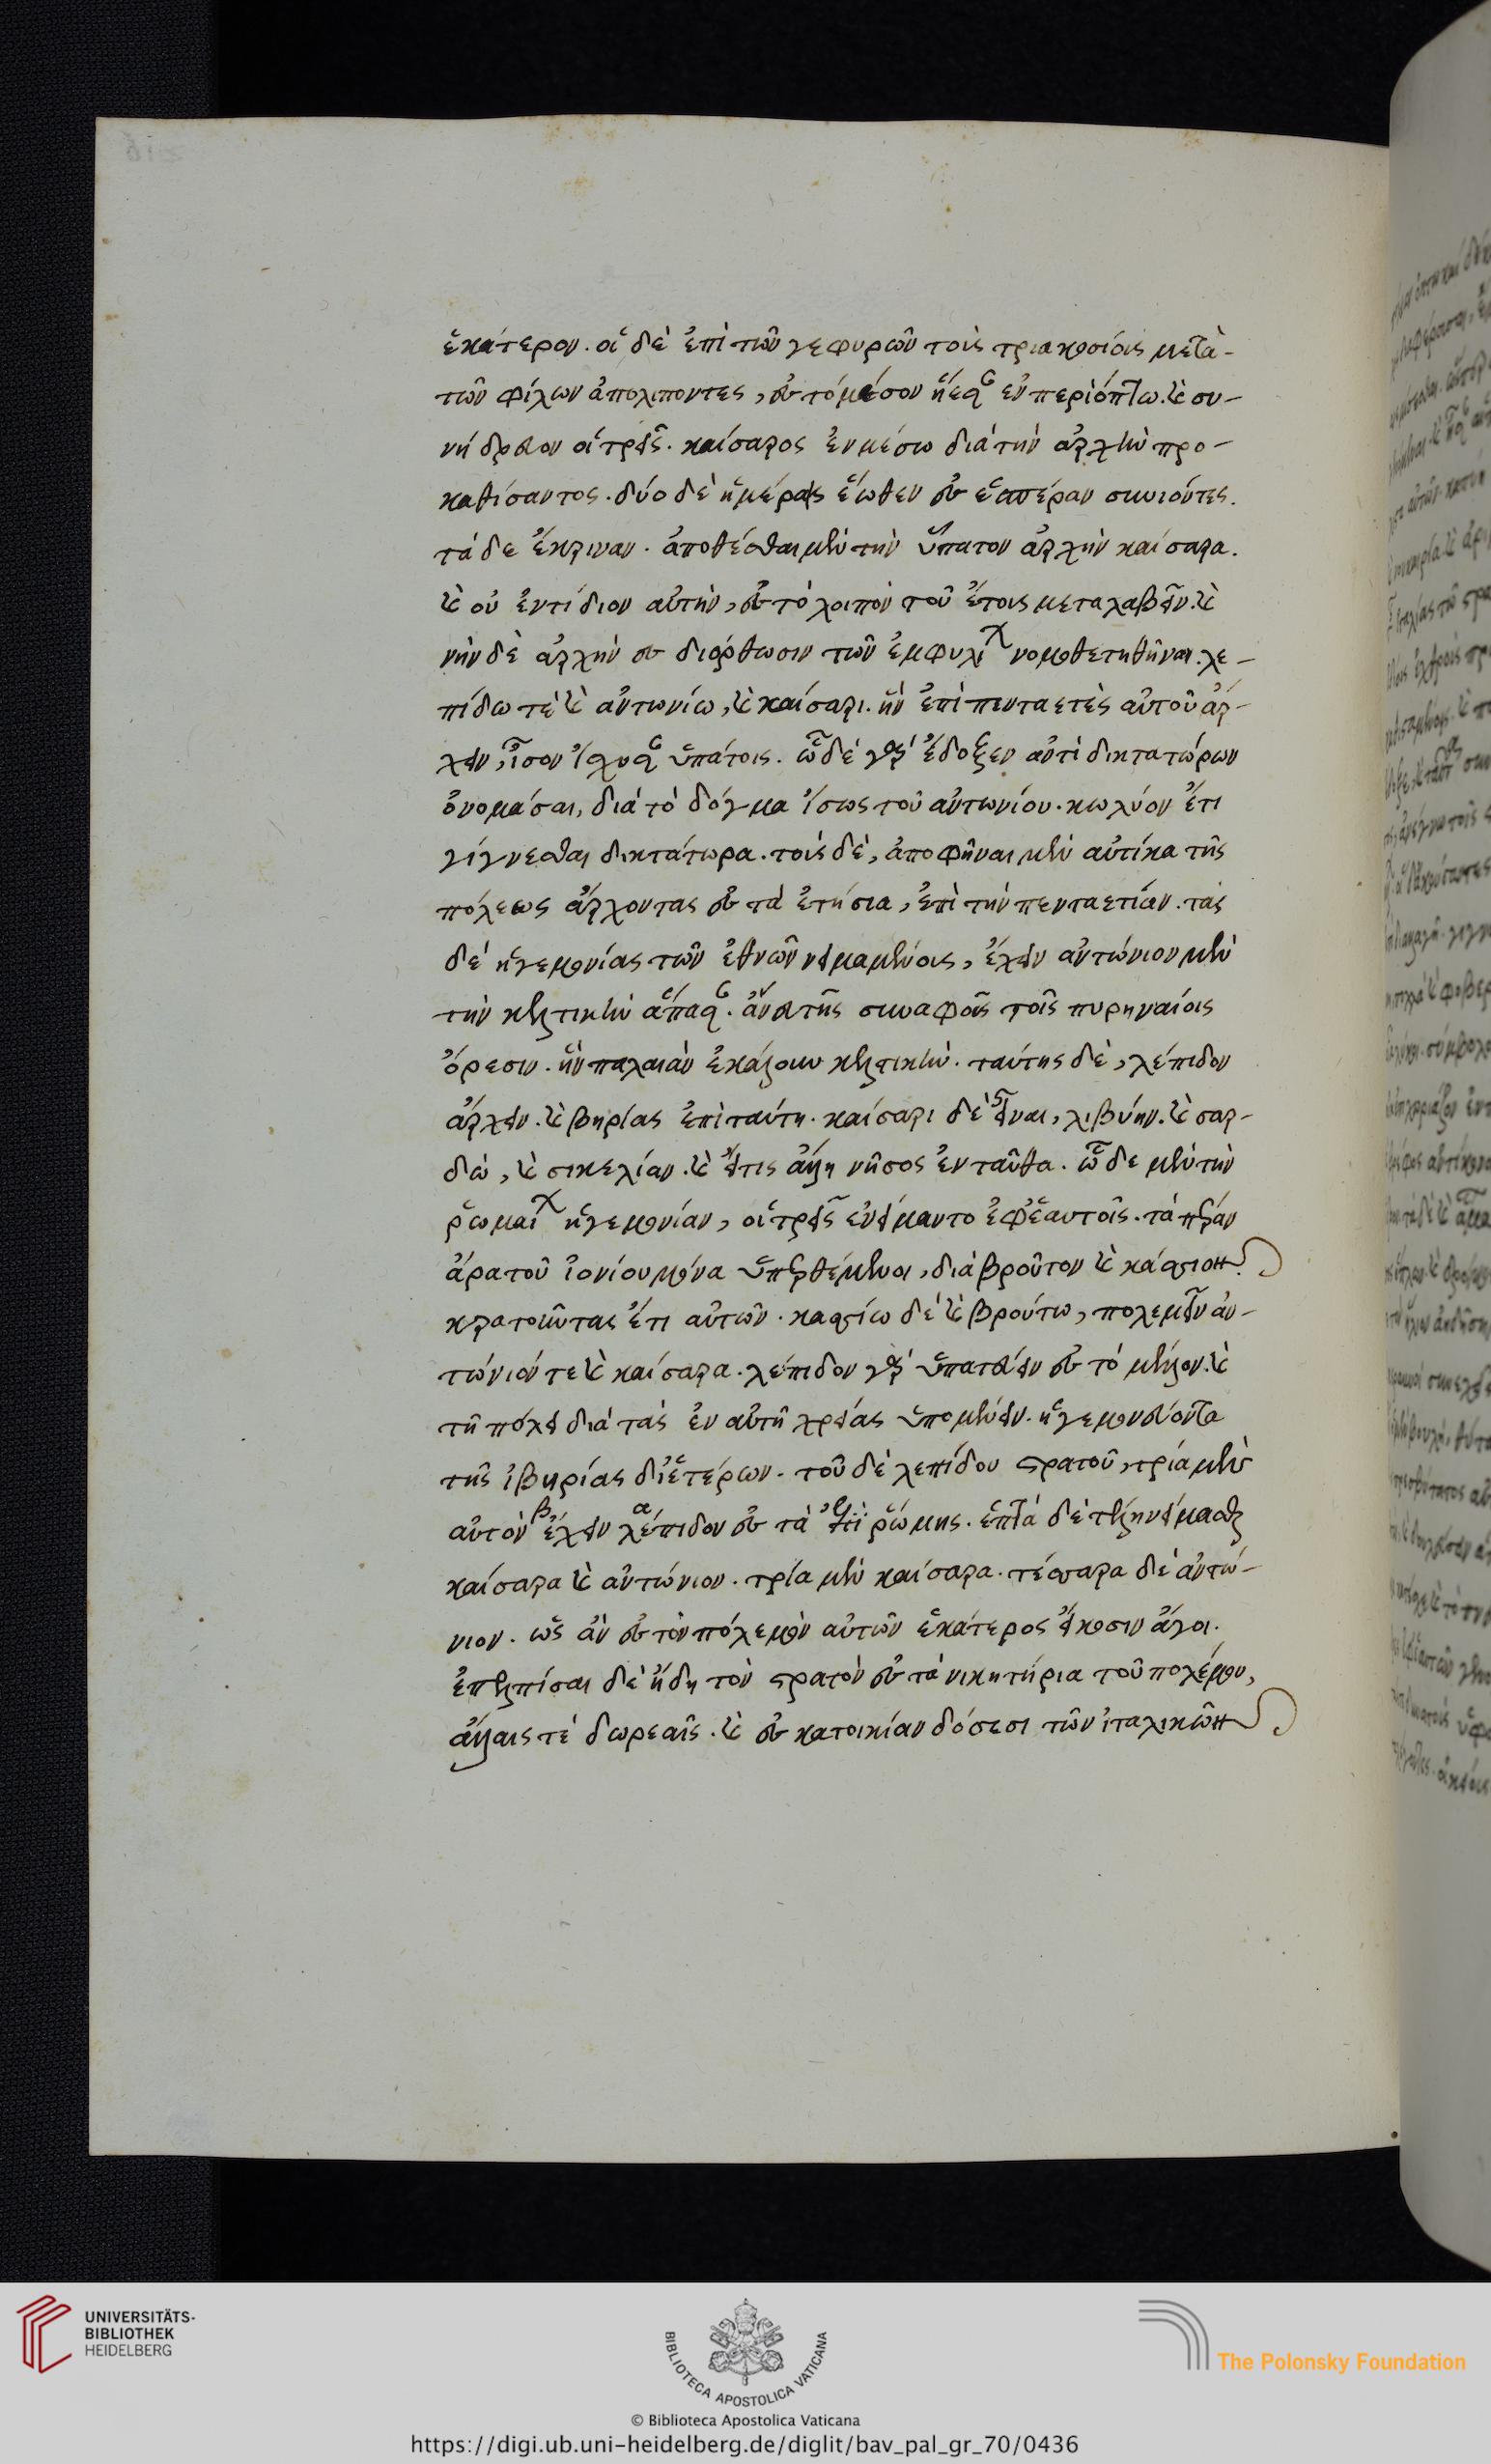 ἑκάτερον. οἱ δὲ ἐπὶ τῶν γεφυρῶν τοῖς τριακοσίοις μετὰ-
τῶν φίλων ἀπολιποντες, ἐς τὸ μέσον ἤεσαν ἐν περιόπτω. καὶ συ-
νήδρευον οἱ τρεῖς. καίσαρος ἐν μέσω διὰ τὴν ἀρχὴν προ-
καθίσαντος. δύο δὲ ἡμέραις ἕωθεν ἐς ἑσπέραν συνιόντες.
τά δε ἔκριναν. ἀποθέσθαι μὲν τὴν ὕπατον ἀρχὴν καίσαρα.
καὶ οὐεντίδιον αὐτὴν, ἐς τὸ λοιπὸν τοῦ ἔτους μεταλαβεῖν. καὶ
νὴν δὲ ἀρχὴν ἐς διόρθωσιν τῶν ἐμφυλί νομοθετηθῆναι. λε-
πίδω τὲ καὶ ἀντωνίω, καὶ καίσαρι. ἣν ἐπὶ πενταετὲς αὐτοῦ ἄρ-
χειν, ἶσον ἰσχυσαν ὑπάτοις. ὧδὲ γὰρ ἔδοξεν ἀντὶ δικτατώρων
ὀνομάσαι, διὰ τὸ δόγμα ἴσως τοῦ ἀντωνίου. κωλύον ἔτι
γίγνεσθαι δικτάτωρα. τοὺς δὲ, ἀποφῆναι μὲν αὐτίκα τῆς
πόλεως ἄρχοντας ἐς τὰ ἐτήσια, ἐπὶ τὴν πενταετίαν. τὰς
δὲ ἡγεμονίας τῶν ἐθνῶν νειμαμένους, ἔχειν ἀντώνιον μὲν
τὴν κελτικὴν ἅπασαν. ἄνευ τῆς συναφοῦς τοῖς πυρηναίοις
ὄρεσιν. ἣν παλαιὰν ἐκάλουν κελτικὴν. ταύτης δὲ, λέπιδον
ἄρχειν. καὶ βηρίας ἐπὶ ταύτη. καίσαρι δὲ εἶναι, λιβύην. καὶ σαρ-
δὼ, καὶ σικελίαν. καὶ εἴτις ἄλλη νῆσος ἐνταῦθα. ὧδε μὲν τὴν
ῥωμαί ἡγεμονίαν, οἱ τρεῖς ἐνείμαντο ἐφἑαυτοῖς. τὰ πέραν
ἄρα τοῦ ἰονίου μόνα ὑπερθέμενοι, διὰ βροῦτον καὶ κάσσιον
κρατοῦντας ἔτι αὐτῶν. κασσίω δὲ καὶ βρούτω, πολεμεῖν ἀν-
τώνιόν τε καὶ καίσαρα. λέπιδον γὰρ ὑπατεύειν ἐς τὸ μέλλον. καὶ
τῆ πόλει διὰ τὰς ἐν αὐτῆ χρείας ὑπομένειν. ἡγεμονεύοντα
τῆς ἰβηρίας διἑτέρων. τοῦ δὲ λεπίδου στρατοῦ, τρία μὲν
αὐτὸν β ἔχειν α λέπιδον ἐς τὰ ἐπὶ ῥώμης. ἑπτὰ δὲ τέλη νείμασθαι
καίσαρα καὶ ἀντώνιον. τρία μὲν καίσαρα. τέσσαρα δὲ ἀντώ-
νιον. ὡς ἂν ἐς τὸν πόλεμον αὐτῶν ἑκάτερος εἴκοσιν ἄγοι.
ἐπελπίσαι δὲ ἤδη τὸν στρατὸν ἐς τὰ νικητήρια τοῦ πολέμου,
ἄλλαις τὲ δωρεαῖς. καὶ ἐς κατοικίαν δόσεσι τῶν ἰταλικῶν
UNIVERSITÄTS-
BIBLIOTHEK
HEIDELBERG
BIBLIOTECA APOSTOLICA VATICANA
The Polonsky Foundation
© Biblioteca Apostolica Vaticana
https://digi.ub.uni-heidelberg.de/diglit/bav_pal_gr_70/0436